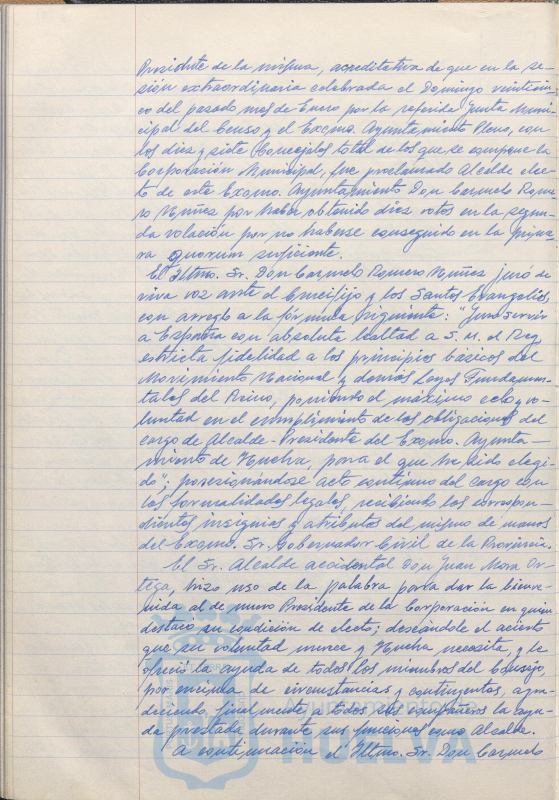 Presidente de la misma, acreditativa de que en la se-
sión extraordinaria celebrada el Domingo veinticin-
co del pasado mes de Enero por la referida Junta Muni-
cipal del Censo y el Excmo. Ayuntamiento Pleno, con
los diez y siete Concejales total de los que se compone la
Corporación Municipal, fue proclamado Alcalde elec-
to de este Excmo. Ayuntamiento Don Carmelo Rome-
ro Núñez por haber obtenido diez votos en la segun-
da votación por no haberse conseguido en la prime-
ra quorum suficiente.
El Iltmo. Sr. Don Carmelo Romero Núñez juró de
viva voz ante el Crucifijo y los Santos Evangelios,
con arreglo a la fórmula siguiente: "Juro servir
a España con absoluta lealtad a S. M. el Rey
estricta fidelidad a los principios básicos del
Movimiento Nacional y demás Leyes Fundamen-
tales del Reino, poniendo el máximo celo y vo-
luntad en el cumplimiento de las obligaciones del
cargo de Alcalde-Presidente del Excmo. Ayunta-
miento de Huelva, para el que he sido elegi-
do"; posesionándose acto continuo del cargo con
las formalidades legales, recibiendo los correspon-
dientes insignias y atributos del mismo de manos
del Excmo. Sr. Gobernador Civil de la Provincia.
El Sr. Alcalde accidental Don Juan Mora Or-
tega, hizo uso de la palabra para dar la bienve-
nida al nuevo Presidente de la Corporación en quien
destacó su condición de electo; deseándole el acierto
que su voluntad merece y Huelva necesita, y le
ofreció la ayuda de todos los miembros del Consejo,
por encima de circunstancias y contingentes, agra-
deciendo, finalmente a todos sus compañeros la ayu-
da prestada durante sus funciones como Alcalde.
A continuación el Iltmo. Sr. Don Carmelo
HUELVA